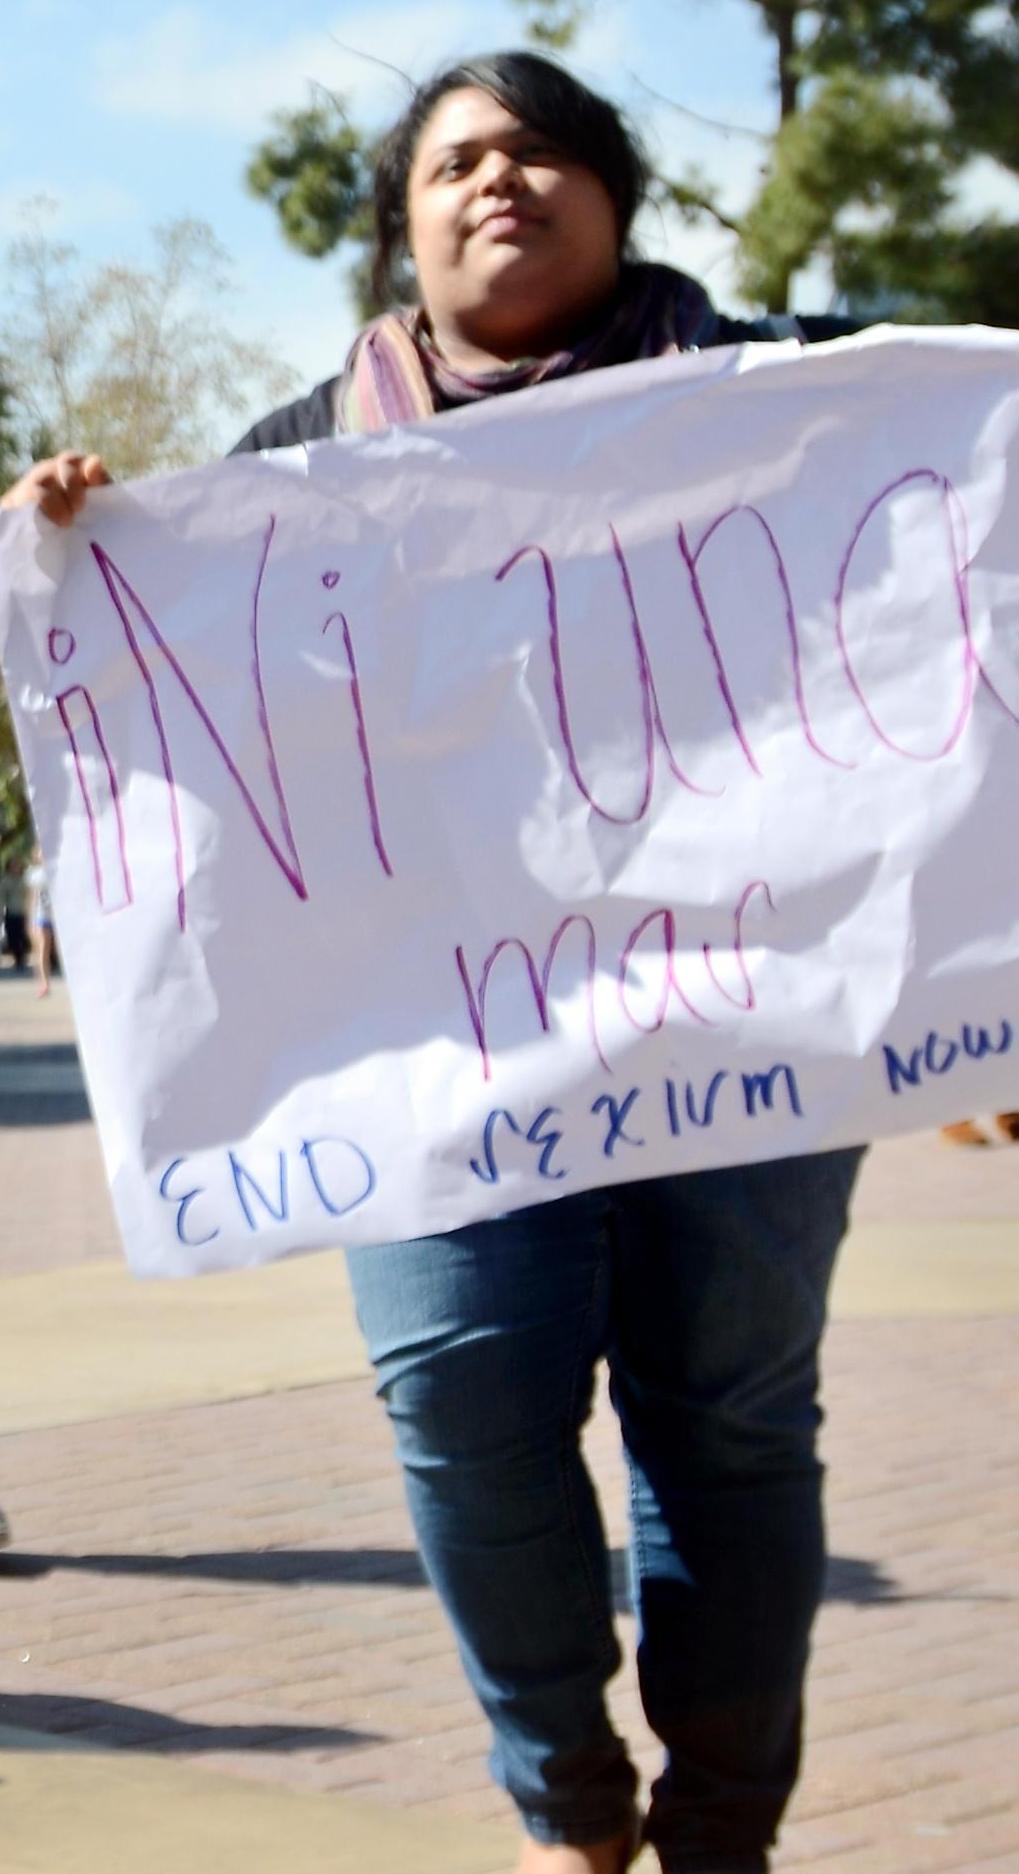 ¡Ni una
mas
END SEXISM NOW